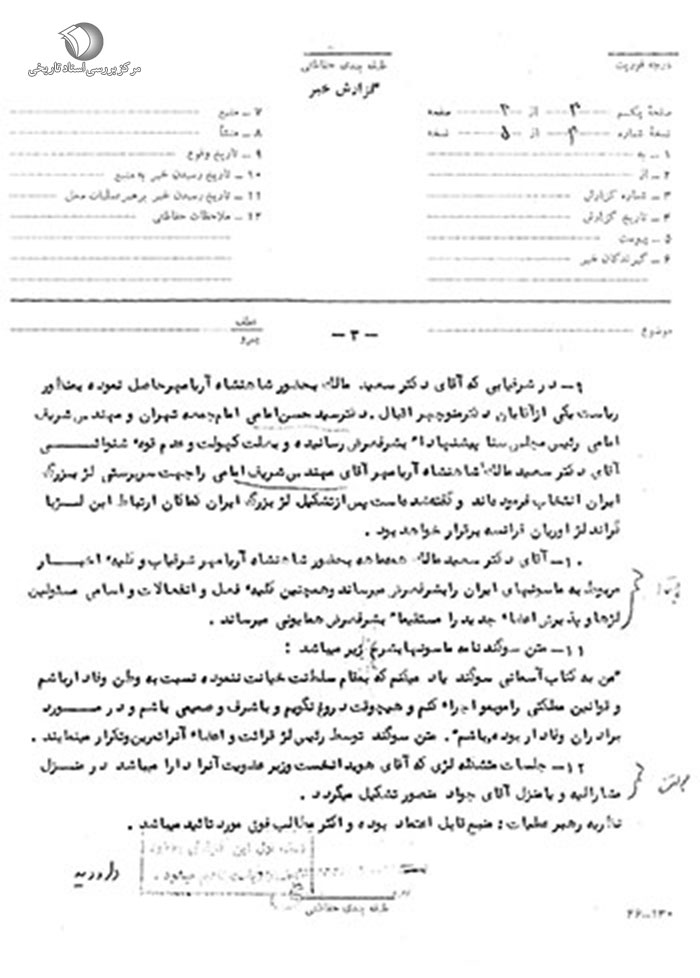 مرکز بررسی اسناد تاریخی
درجه فوریت
طبقه بندی حفاظتی
گزارش خبر
صفحهٔ یکم ۳ از ۳ صفحه
نسخهٔ شماره از ۵ نسخه
۱ ـ به
۲ ـ از
۳ ـ شماره گزارش
۴ ـ تاریخ گزارش
۵ ـ پیوست
۶ ـ گیرندگان خبر
۷ ـ منبع
۸ ـ منشأ
۹ ـ تاریخ وقوع
۱۰ ـ تاریخ رسیدن خبر به منبع
۱۱ ـ تاریخ رسیدن خبر برهبر عملیات محل
۱۲ ـ ملاحظات حفاظتی
موضوع
ـ ۳ ـ
عطف
پیرو
۹ ـ در شرفیابی که آقای دکتر سعید مالک بحضور شاهنشاه آریامهر حاصل نموده بمنظور
ریاست یکی از آقایان دکتر منوچهر اقبال . دکتر سید حسن امامی امام جمعه تهران و مهندس شریف
امامی رئیس مجلس سنا پیشنهاداً بشرفعرض رسانیده و بعلت کهولت و عدم قوه شنوائی
آقای دکتر سعید مالک شاهنشاه آریامهر آقای مهندس شریف امامی را جهت سرپرستی لژ بزرگ
ایران انتخاب فرموده‌اند و گفته شده است پس از تشکیل لژ بزرگ ایران کماکان ارتباط این لژ با
گراند لژ اوریان فرانسه برقرار خواهد بود .
۱۰ـ آقای دکتر سعید مالک همه‌ماهه بحضور شاهنشاه آریامهر شرفیاب و کلیه اخبار
مربوط به ماسونهای ایران را بشرفعرض میرساند و همچنین کلیه فعل و انفعالات و اسامی مسئولین
لژها و پذیرش اعضاء جدید را مستقیماً بشرفعرض همایونی میرساند .
۱۱ـ متن سوگند نامه ماسونها بشرح زیر میباشد :
"من به کتاب آسمانی سوگند یاد میکنم که بمقام سلطنت خیانت ننموده نسبت به وطن وفادار باشم
و قوانین مملکتی را موبمو اجراء کنم و هیچوقت دروغ نگویم و باشرف و صمیمی باشم و در مورد
برادران وفادار بوده باشم" . متن سوگند توسط رئیس لژ قرائت و اعضاء آنرا تمرین و تکرار مینمایند .
۱۲ـ جلسات متشکله لژی که آقای هویدا نخست وزیر عضویت آنرا دارا میباشد در منزل
مشارالیه و یا منزل آقای جواد منصور تشکیل میگردد .
نظریه رهبر عملیات : منبع قابل اعتماد بوده و اکثر مطالب فوق مورد تائید میباشد .
طبقه بندی حفاظتی
۲۶ــ۱۳۰